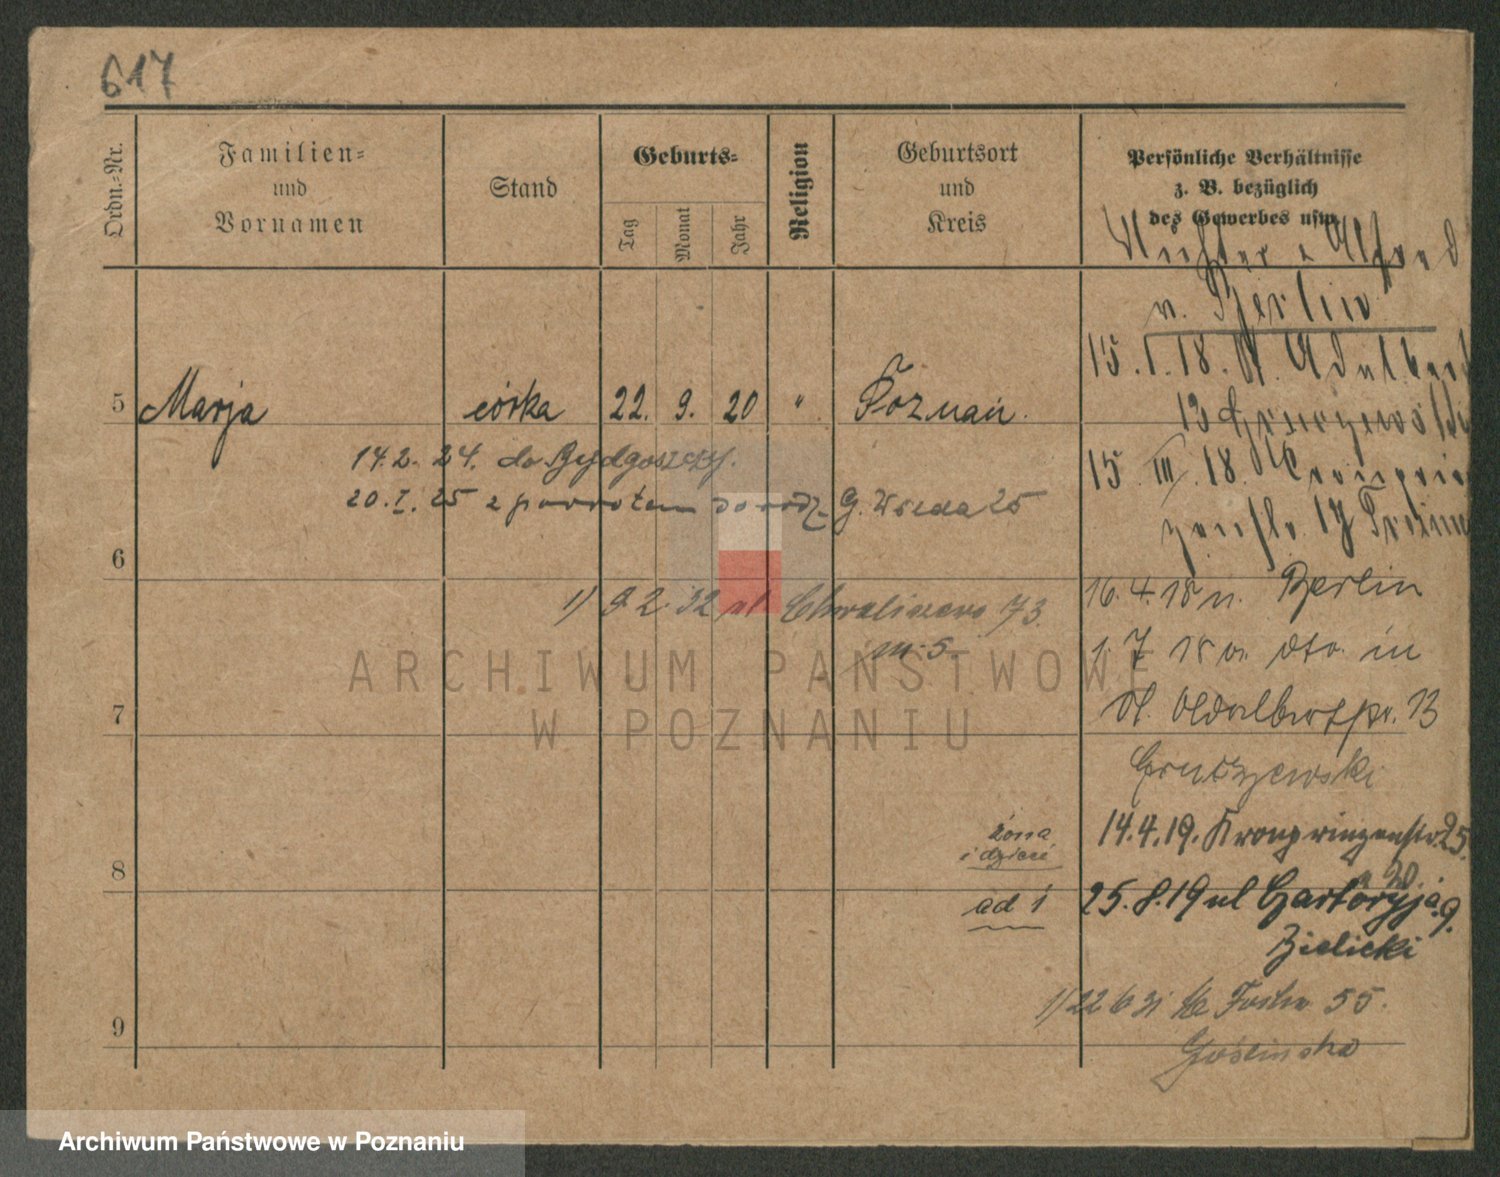 617
Ordn.-Nr.
Familien-
und
Vornamen
Stand
Geburts-
Tag
Monat
Jahr
Religion
Geburtsort
und
Kreis
Persönliche Verhältnisse
z. B. bezüglich
des Gewerbes usw.
Alfred
v. Berlin
15. I. 18. St. Adelbert
5 Marja córka 22. 9. 20 " Poznań.
13
14.2.24. do Bydgoszczy.
15 III 18.
20. I. 25 z powrotem do rodz. G. Wilda 25
6
16.4.18 n. Berlin
1) 9 2. 32 ul 73.
m. 5.
1. 7 18 v. dto. in
ARCHIWUM PAŃSTWOWE
W POZNANIU
7
St. Adalbertstr. 13
Gruszewski
żona
i dzieci
14.4.19. Kronprinzenstr. 25.
8
ad 1
25. 8. 19 ul Czartoryja 9.
Bielicki
1) 22 6 31 55.
9
Goślinska
Archiwum Państwowe w Poznaniu